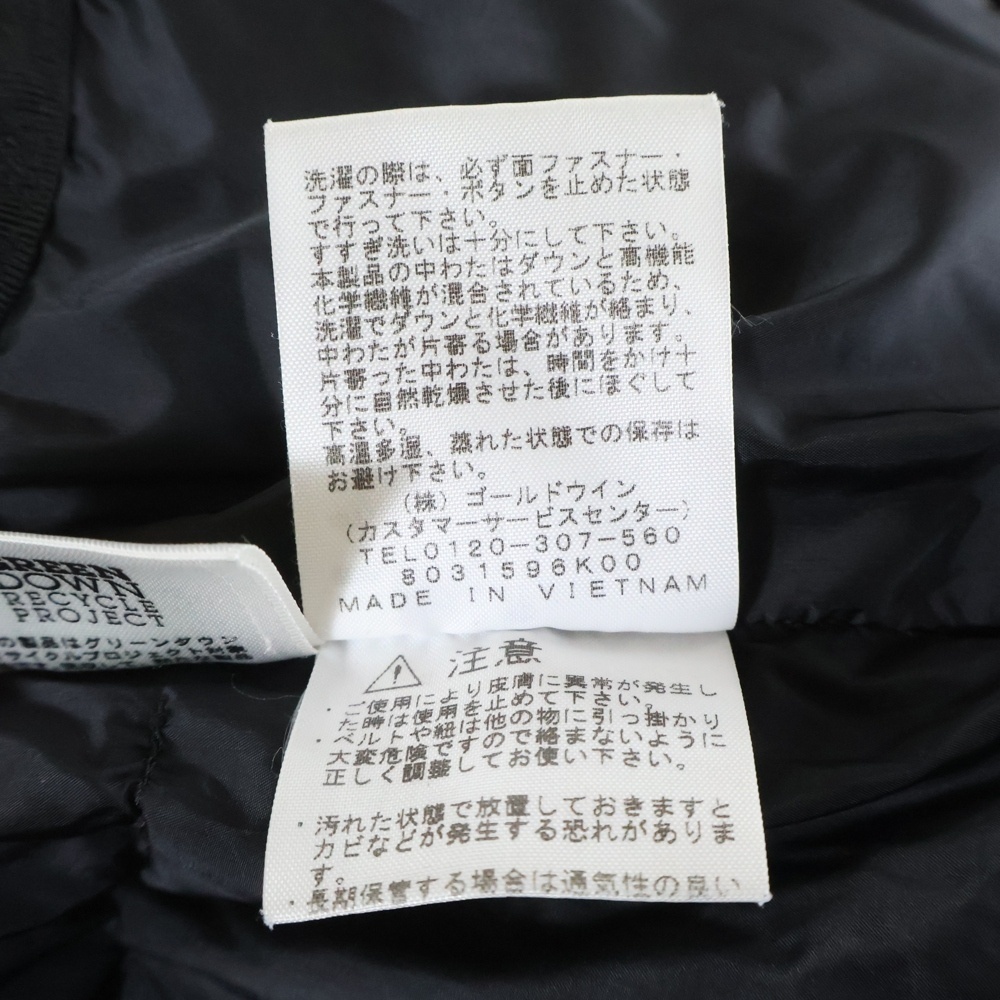 洗濯の際は、必ず面ファスナー・
ファスナー・ボタンを止めた状態
で行って下さい。
すすぎ洗いは十分にして下さい。
本製品の中わたはダウンと高機能
化学繊維が混合されているため、
洗濯でダウンと化学繊維が絡まり、
中わたが片寄る場合があります。
片寄った中わたは、時間をかけ十
分に自然乾燥させた後にほぐして
下さい。
高温多湿、蒸れた状態での保存は
お避け下さい。
(株)ゴールドウイン
(カスタマーサービスセンター)
TEL0120-307-560
8031596K00
MADE IN VIETNAM
GREEN
DOWN
RECYCLE
PROJECT
の製品はグリーンダウン
サイクルプロジェクト
注意
・ご使用により皮膚に異常が発生し
た時は使用を止めて下さい。
・ベルトや紐は他の物に引っ掛かり
大変危険ですので絡まないように
正しく調整してお使い下さい。
・汚れた状態で放置しておきますと
カビなどが発生する恐れがありま
す。
・長期保管する場合は通気性の良い